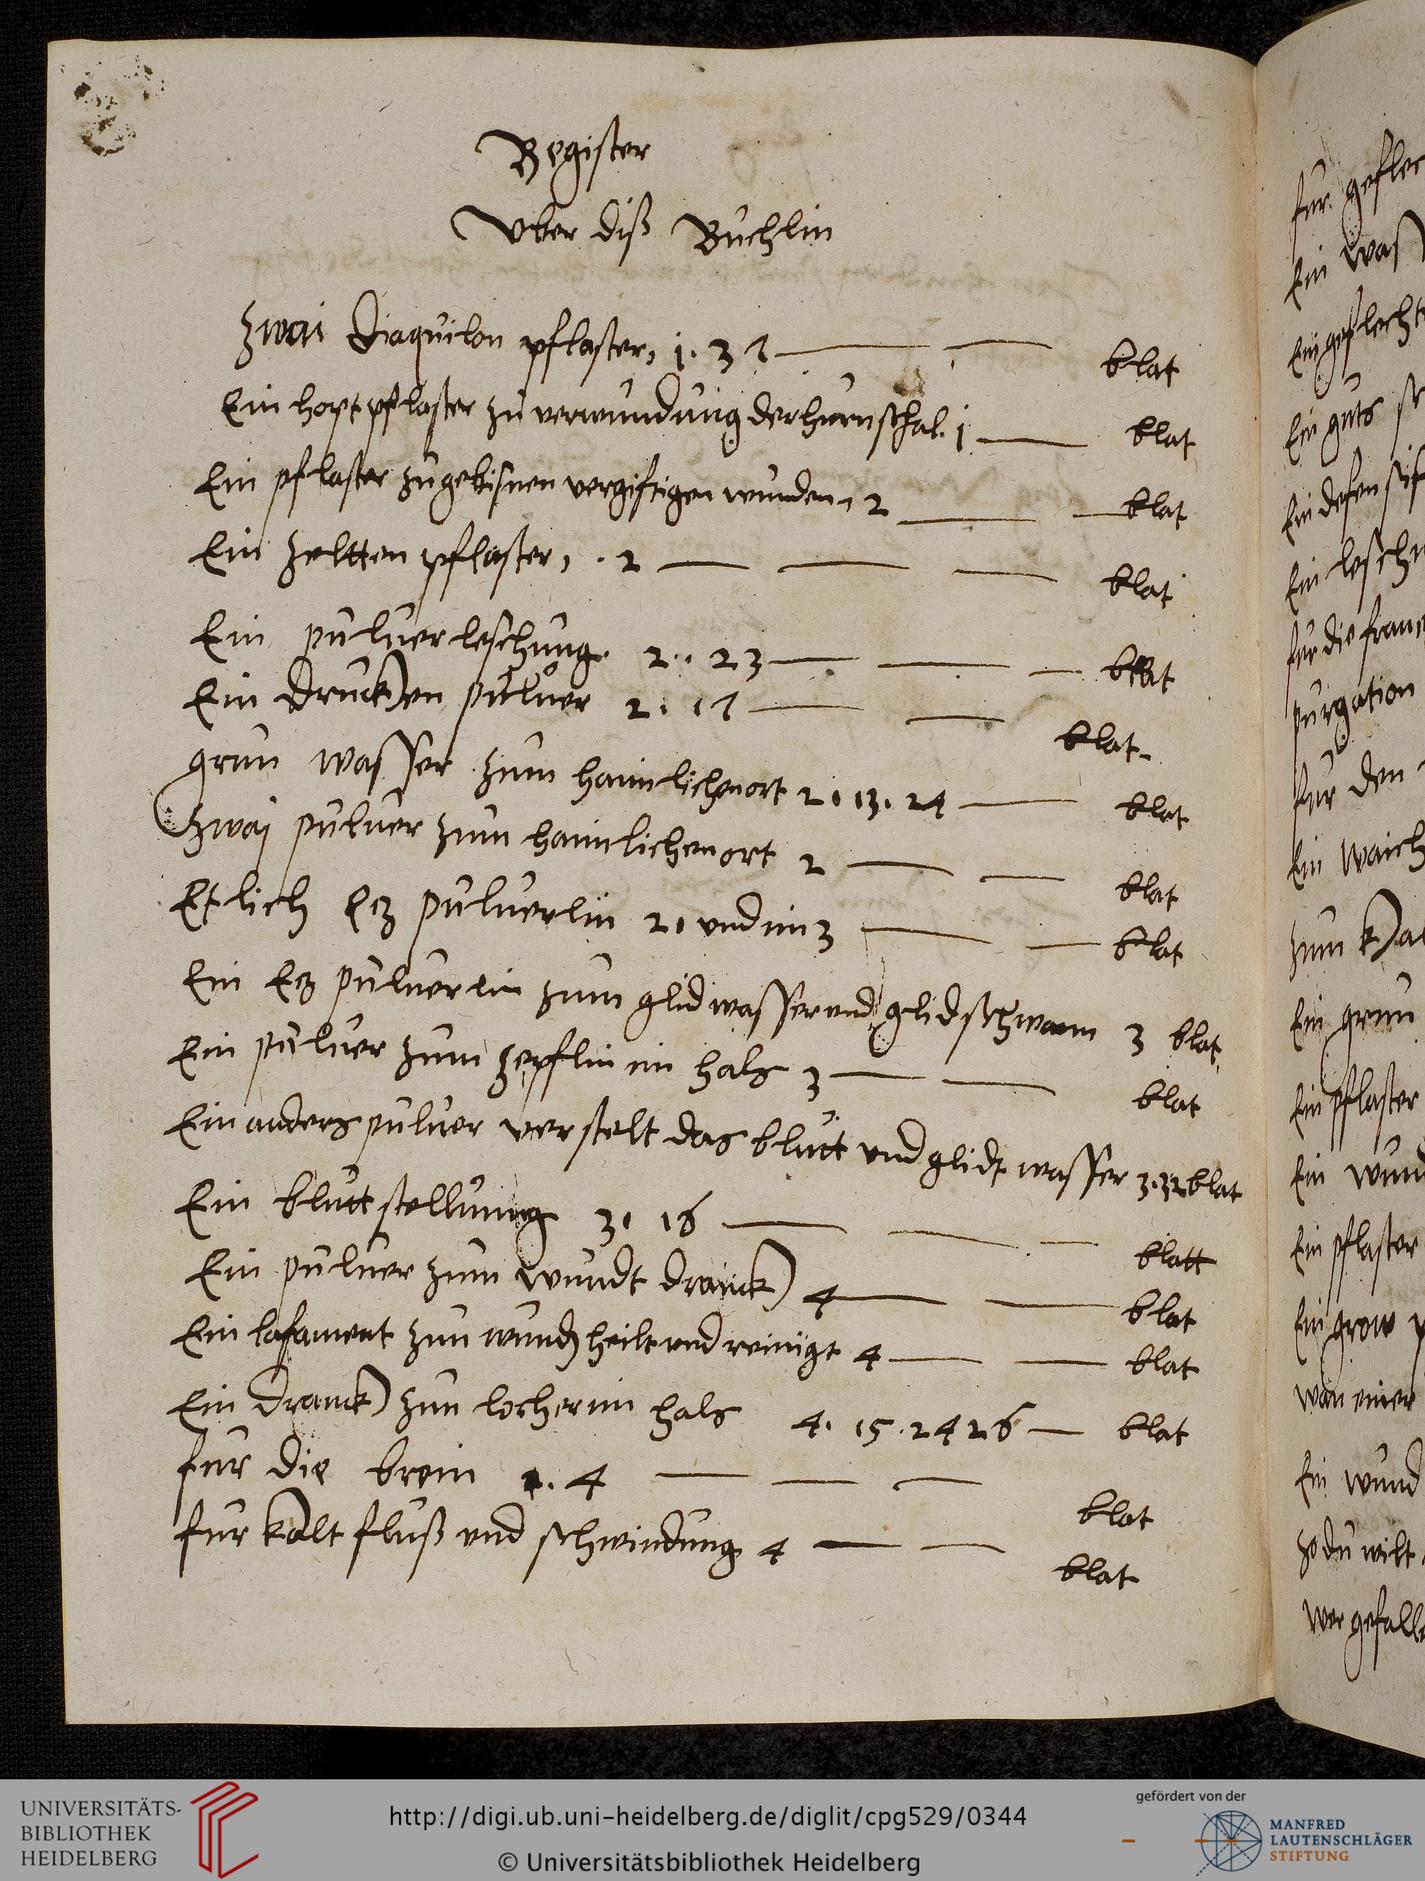 Register
Vber diß Büchlin
Zwai Diaquilon pflaster, 1. 37 blat
Ein hopt pflaster zü verwundüng der hirnschal. 1 blat
Ein pflaster zü gebisnen vergiftigen wunden, 2 blat
Ein zeltten pflaster, . 2 blat
Ein pülver leschüng. 2. . 23 blat
Ein drücken pülver 2. 17 blat
grün wasser zum haimlichen ort 2. 13. 24 blat
Zwaj pülver zum haimlichen ort 2 blat
Etlich Ecz pülverlin 2. vnd im 3 blat
Ein Ecz pülverlin zum glidwasser vnd glidschwam 3 blat
Ein pülver zum zepflin im hals 3 blat
Ein anders pülver verstelt das blütt vnd glidt wasser 3. 32 blat
Ein blütt stellüng 3. 16 blatt
Ein pülver zum wundt dranck 4 blat
Ein lafament zun wunden heilt vnd reinigt 4 blat
Ein dranck zun locher im hals 4. 15. 24 26 blat
für die brein . 4 blat
für kalt flüß vnd schwindüng 4 blat
für geflec
Ein wass
Ein geflecht
Ein güts
Ein defensif
Ein lesch
für die fran
pürgation
für den
Ein waich
zum
Ein grün
Ein pflaster
Ein wund
Ein pflaster
Ein grow
wan einer
Ein wund
so dü wilt
wer gefall
UNIVERSITÄTS-
BIBLIOTHEK
HEIDELBERG
http://digi.ub.uni-heidelberg.de/diglit/cpg529/0344
© Universitätsbibliothek Heidelberg
gefördert von der
MANFRED
LAUTENSCHLÄGER
STIFTUNG